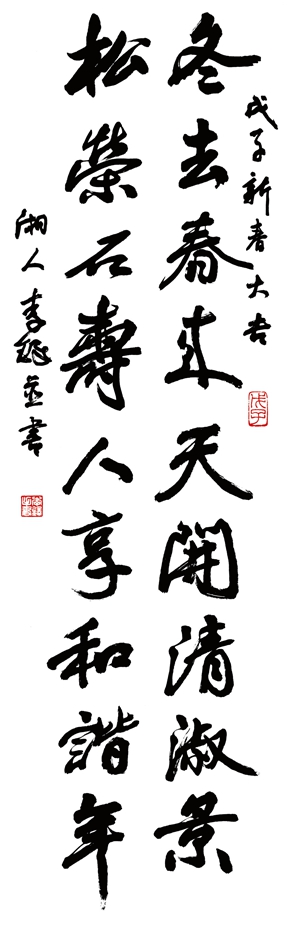 戊子新春大吉
冬去春来天開清淑景
松榮石壽人享和諧年
湘人李
並書
戊子